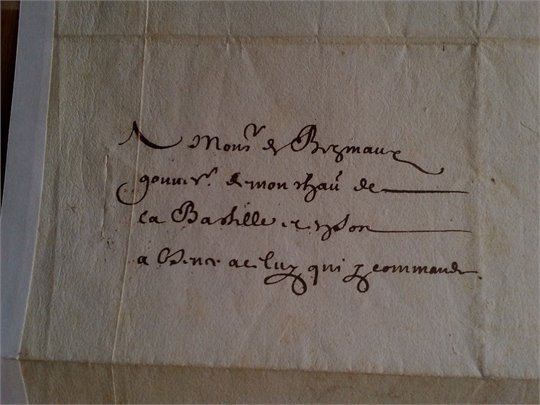 A Monsr de Bezmaux
gouverr. de mon chau de
la Bastille et en son
absence a celuy qui y commande